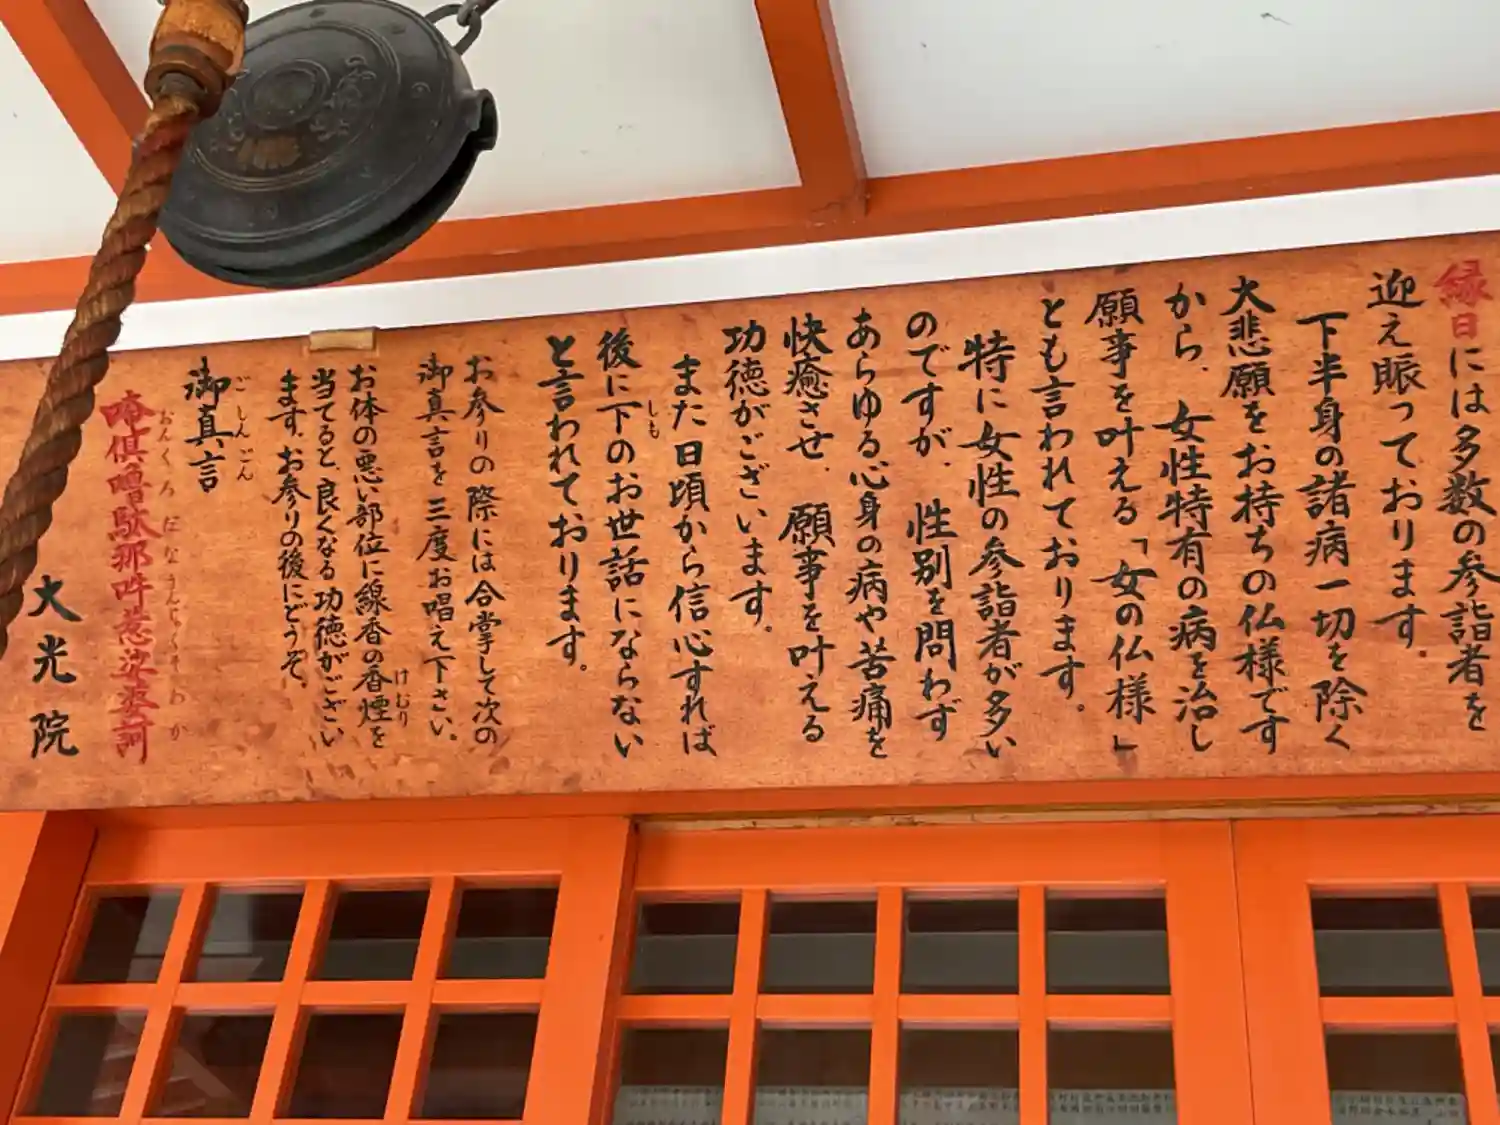 縁日には多数の参詣者を
迎え賑っております。
下半身の諸病一切を除く
大悲願をお持ちの仏様です
から、女性特有の病を治し
願事を叶える「女の仏様」
とも言われております。
特に女性の参詣者が多い
のですが、性別を問わず
あらゆる心身の病や苦痛を
快癒させ、願事を叶える
功徳がございます。
また日頃から信心すれば
後に下のお世話にならない
しも
と言われております。
お参りの際には合掌して次の
御真言を三度お唱え下さい。
お体の悪い部位に線香の香煙を
けむり
当てると、良くなる功徳がござい
ます。お参りの後にどうぞ。
御真言
ごしんごん
唵倶嚕駄那吽惹
おんくろだなうんじゃくそわか
大光院